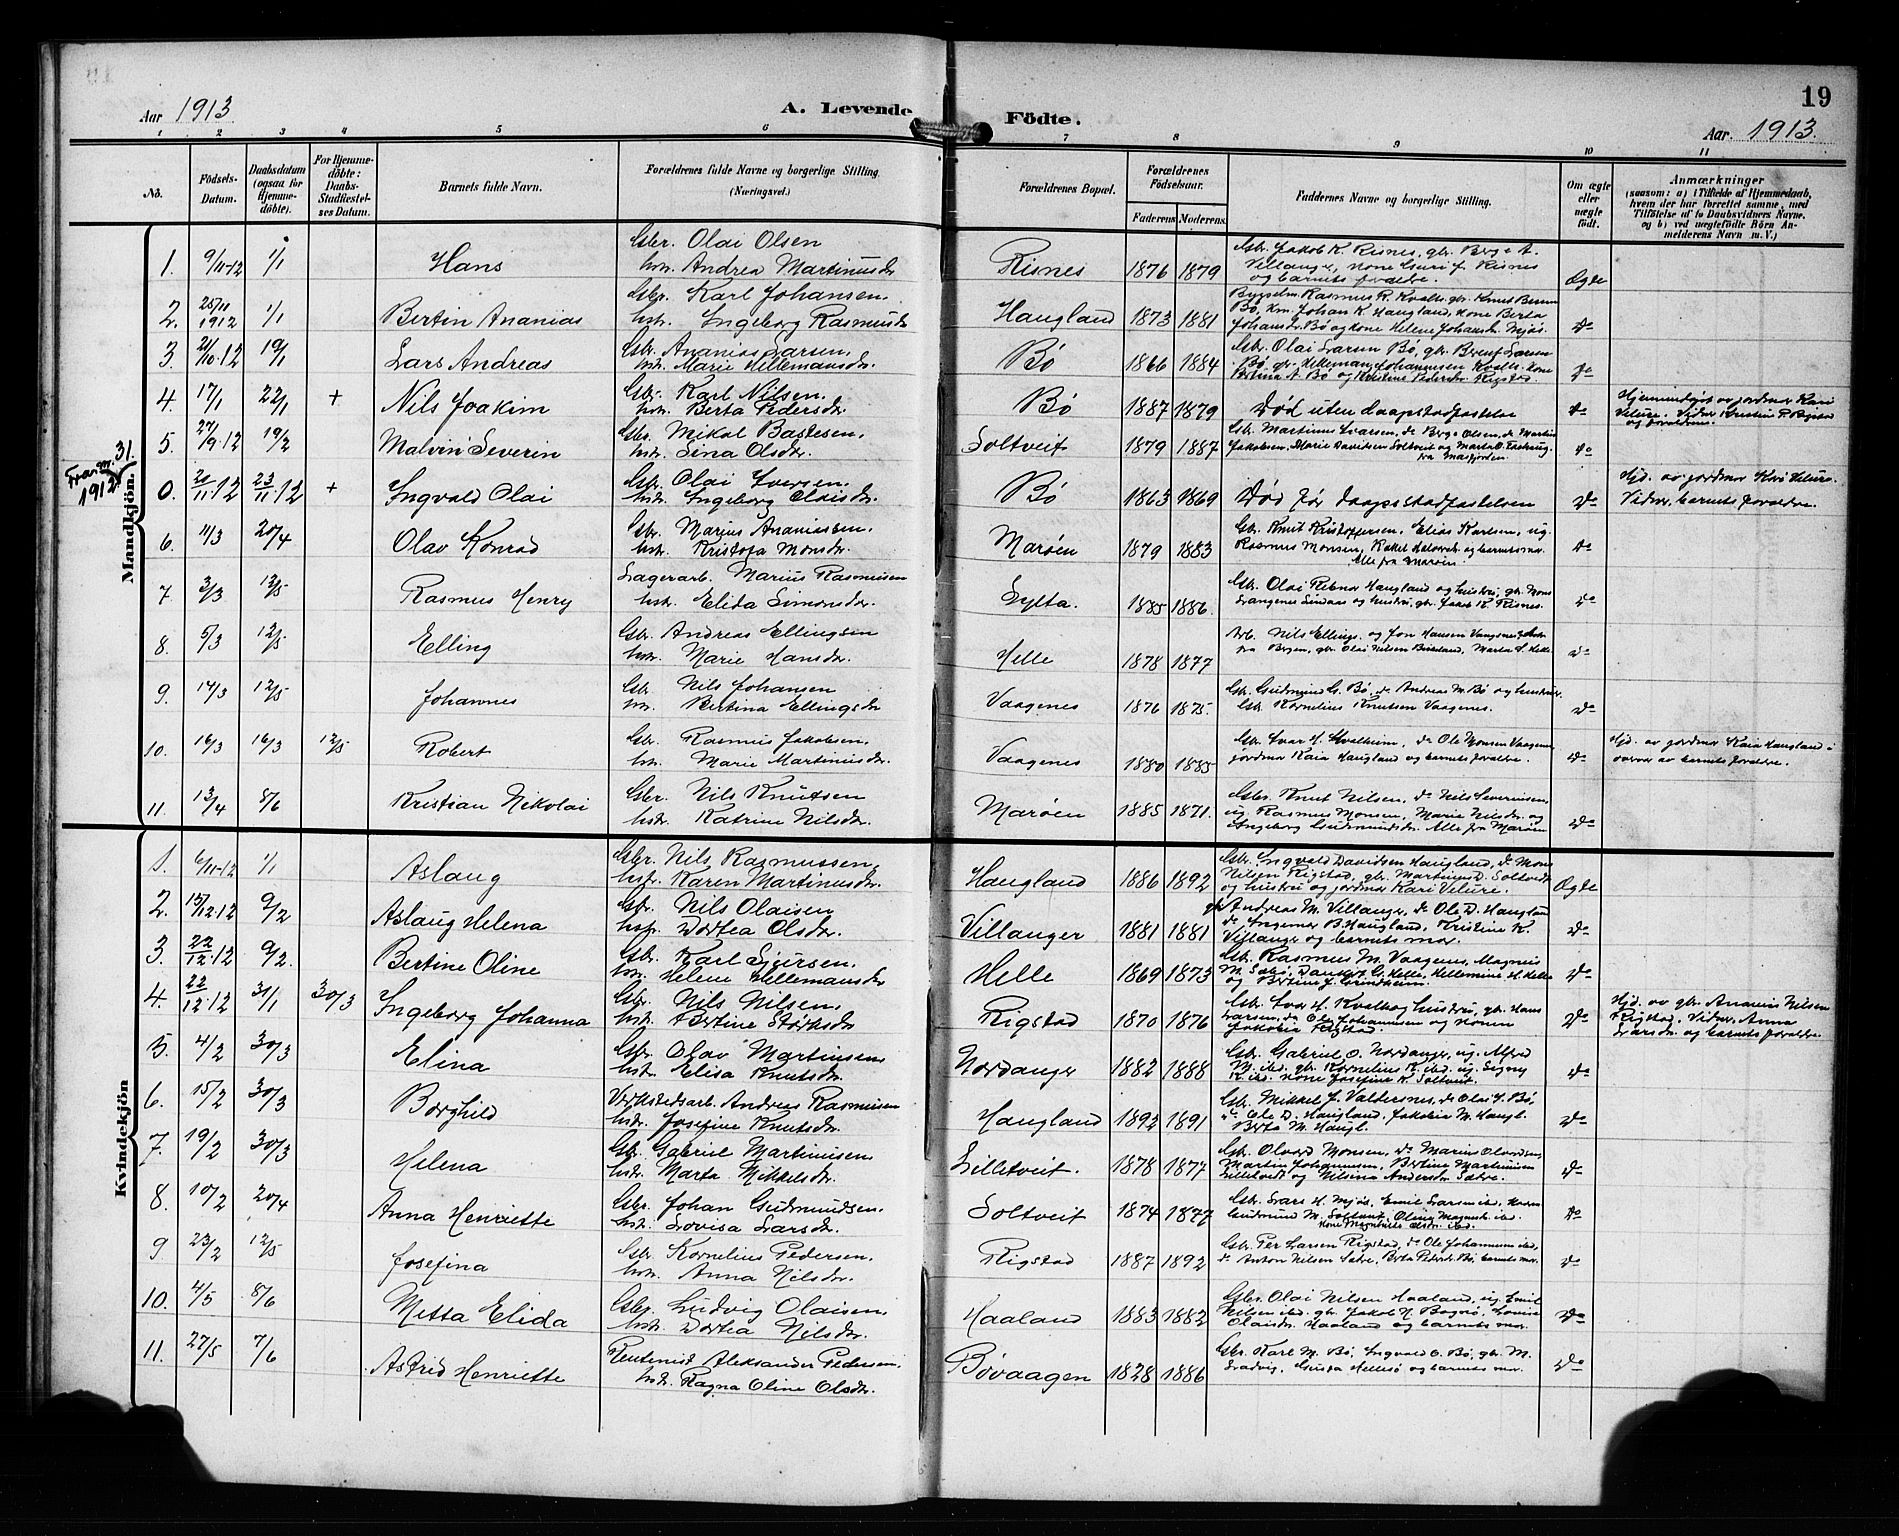 19
Aar 1913
A. Levende Födte.
Aar. 1913.
1 2 3 4 5 6 7 8 9 10 11
No.
Födsels-Datum.
Daabsdatum (ogsaa for Hjemme-döbte).
For Hjemme-döbte: Daabs-Stadfæstel-ses Datum.
Barnets fulde Navn.
Forældrenes fulde Navne og borgerlige Stilling. (Næringsvei.)
Forældrenes Bopæl.
Forældrenes Födselsaar.
Faderens Moderens.
Faddernes Navne og borgerlige Stilling.
Om ægte eller uægte födt.
Anmærkninger
(saasom: a) i Tilfælde af Hjemmedaab, hvem der har forrettet samme, med Tilföielse af to Daabsvidners Navne, og b) ved uægtefödte Börn An-melderens Navn m. V.)
Mandkjön.
1. 9/11-12 1/1 Hans
Gbr. Olai Olsen
hstr. Andrea Martinusdr
Risnes 1876 1879
Gbr. Jakob K. Risnes, gbr. Berge A.
Villanger, kone Guri J. Risnes
og barnets forældre.
Ægte
2. 25/11 1912 1/1 Bertin Ananias
Gbr. Karl Johansen.
hstr. Ingeborg Rasmusdr
Haugland 1873 1881
Bø, km. Johan K. Haugland, kone Berta
Johansdr. Bø og kone Helene Johansdr. Mjøs.
Do
3. 21/10-12 19/1 Lars Andreas
Gbr. Ananias Larsen.
hstr. Marie Hellemansdr.
Bø 1866 1884
Gbr. Olai Larsen Bø, gbr. Brent Larsen
Bø, gbr. Helleman Johannesen Kvalh. kone
Bertina A. Bø og Kristine Pedersdr. Rigstad.
Do
4. 17/1 22/1 + Nils Joakim
Gbr. Karl Nilsen.
hstr. Berta Pedersdr.
Bø 1887 1879
Død uten daapstadfæstelse
Do
Hjemmedøpt av jordmor Kari
Velure. Vidner Kristine P.
og forældrene.
5. 27/9-12 19/2 Malvin Severin
Gbr. Mikal Bastesen.
hstr. Sina Olsdr.
Soltveit 1879 1887
Gbr. Martinus Ivarsen, do Berge Olsen, do Martin
Jakobsen, Marie Davidsen Soltveit og Marta O.
fra Masfjorden.
Do
Fra nr. 31. 1912
0. 21/11-12 23/11-12 + Ingvald Olai
Gbr. Olai Iversen.
hstr. Ingeborg Olaisdr.
Bø 1863 1869
Død før daapsstadfæstelsen
Do
Hjd. av jordmor Kari Velure.
Vidner, barnets forældre.
6. 11/3 20/4 Olav Konrad
Gbr. Marius Ananiassen,
hstr. Kristofa Monsdr.
Marøen 1879 1883
Gbr. Knut Kristoffersen, Elias Karlsen, ug.
Rasmus Monsen, Rakel Halvorsdr. og barnets mor.
Alle fra Marøen.
Do
7. 3/3 12/5 Rasmus Henry
Lagerarb. Marius Rasmussen
hstr. Elida Simonsdr.
Sylta. 1885 1886.
Gbr. Olai Rebnor Haugland og hustru, gbr. Mons
Langenes Lindaas og hustru, gbr. Jakob K. Risnes.
Do
8. 5/3 12/5 Elling
Gbr. Andreas Ellingsen
hstr. Marie Hansdr.
Helle 1878 1877
Arb. Nils Ellings. og Jon Hansen
fra Bergen, gbr. Olai Nilsen Birkeland, Marta H. Helle
Do
9. 14/3 12/5 Johannes
Gbr. Nils Johansen
hstr. Bertina Ellingsdr
Vaagenes 1876 1875.
Gbr. Gudmund G. Bø, do Andreas M. Bø og hustruer
Gbr. Kornelius Knutsen Vaagenes.
Do
10. 16/3 16/3 12/5 Robert
Gbr. Rasmus Jakobsen.
hstr. Marie Martinusdr.
Vaagenes 1880 1885
Gbr. Ivar H. Kvalheim, do Ole Monsen Vaagenes
jordmor Kaia Haugland og barnets forældre.
Do
Hjd. av jordmor Kaia Haugland i
nærvær av barnets forældre.
11. 13/4 8/6 Kristian Nikolai
Gbr. Nils Knutsen
hstr. Katrine Nilsdr.
Marøen 1885 1871.
Gbr. Knut Nilsen, do Nils Severinsen,
ug. Rasmus Monsen, Marie Nilsdr. og
Ingeborg Gudmundsdr. Alle fra Marøen
Do
Kvindekjön
1. 6/11-12 1/1 Aslaug
Gbr. Nils Rasmussen,
hstr. Karen Martinusdr.
Haugland 1886 1892
Gbr. Ingvald Davidsen Haugland, do Mons
Nilsen Rigstad, gbr. Martinus D. Soltveit
og hustru og jordmor Kari Velure.
Ægte
2. 15/12-12 9/2 Aslaug Helena
Gbr. Nils Olaisen
hstr. Dortea Olsdr.
Villanger 1881 1881
gbr Andreas M. Villanger, do Ole D. Haugland
do Ingemar B. Haugland, Kristine K.
Villanger og barnets mor.
Do
3. 22/12-12 9/2. Bertine Oline
Gbr. Karl Sjursen.
hstr. Helene Hellemansdr.
Helle 1869 1873
Gbr. Rasmus M. Vaagenes, Magnus
M. Sæbø, G. Helle, Hellemine H. Helle
og Bertine J. Grindheim.
Do
4. 22/12-12 31/1 30/3 Ingeborg Johanna
Gbr. Nils Nilsen.
hstr. Bertine Størksdr
Rigstad 1870 1876
Gbr. Ivar H. Kvalh. og hustru, gbr. Hans
Larsen, do Ole Johannesen og konen
Jakobia Rigstad.
Do
Hjd. av gbr. Ananias Nilsen
Rigstad, Vidner, Anna
Larsdr. og barnets forældre.
5. 4/2 30/3 Elina
Gbr. Olav Martinsen
hstr. Elisa Knutsdr.
Nordanger 1882 1888
Gbr. Gabriel O. Nordanger, ug. Alfred
M. ibd. gbr. Kornelius K. ibd. ug. Signy
K. ibd. kone Josefine K. Soltveit.
Do
6. 15/2 30/3 Borghild
Verkstedsarb. Andreas Rasmussen
hstr. Josefine Knutsdr.
Haugland 1892 1891
Gbr. Mikkel J. Valdersnes, do Olai J. Bø
do Ole D. Haugland, Jakobia M. Haugl.
Berta M. Haugl.
Do
7. 19/2 30/3 Helena
Gbr. Gabriel Martinusen
hstr. Marta Mikkelsdr.
Lilletveit. 1878 1877
Gbr. Olvard Monsen, do Marius Olvardsen,
Martin Johannesen, Bertine Martinusen
Lilletvedt og Nilsina Andersdr. Sætre.
Do
8. 10/2 20/4 Anna Henriette
Gbr. Johan Gudmundsen.
hstr. Lovisa Larsdr.
Soltveit 1874 1877
Gbr. Lars H. Mjøs, Emil Larsen ibd,
Gudmund M. Soltveit, Olina Magnusdr. ibd.
kone Olsdr. ibd.
Do
9 23/2 12/5 Josefina
Gbr. Kornelius Pedersen.
hstr. Anna Nilsdr.
Rigstad 1887 1892
Gbr. Per Larsen Rigstad, do Ole Johannesen ibd,
do Anton Nilsen Sætre, Berta Pedersdr. Bø, barnets mor.
Do
10. 4/5 8/6 Metta Elida
Gbr. Ludvig Olaisen.
hstr. Dortea Nilsdr.
Haaland 1883 1882
Gbr. Olai Nilsen Haaland, ug. Emil
Nilsen ibd. gbr. Jakob H. Bognø, Lovise
Olaisdr. Haaland og barnets mor.
Do
11. 27/5 7/6 Astrid Henriette
Rentenist Aleksander Pedersen.
hstr. Ragna Oline Olsdr.
Bøvaagen 1828 1886
Gbr. Karl M. Bø, Ingvald O. Bø, gbr. M.
Ladvig, Gusta Hellesø og barnets mor.
Do